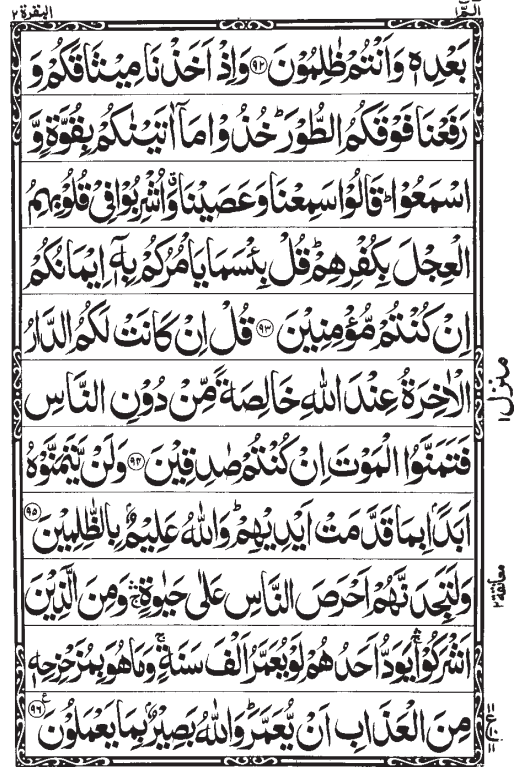 الٓمّٓ ١
البقرة ٢
بَعْدِهٖ وَاَنْتُمْ ظٰلِمُوْنَ ﴿۹۲﴾ وَاِذْ اَخَذْنَا مِيْثَاقَكُمْ وَ
رَفَعْنَا فَوْقَكُمُ الطُّوْرَ ؕ خُذُوْا مَاۤ اٰتَيْنٰكُمْ بِقُوَّةٍ وَّ
اسْمَعُوْا ؕ قَالُوْا سَمِعْنَا وَعَصَيْنَا ۗ وَاُشْرِبُوْا فِيْ قُلُوْبِهِمُ
الْعِجْلَ بِكُفْرِهِمْ ؕ قُلْ بِئْسَمَا يَاْمُرُكُمْ بِهٖۤ اِيْمَانُكُمْ
اِنْ كُنْتُمْ مُّؤْمِنِيْنَ ﴿۹۳﴾ قُلْ اِنْ كَانَتْ لَكُمُ الدَّارُ
الْاٰخِرَةُ عِنْدَ اللّٰهِ خَالِصَةً مِّنْ دُوْنِ النَّاسِ
فَتَمَنَّوُا الْمَوْتَ اِنْ كُنْتُمْ صٰدِقِيْنَ ﴿۹۴﴾ وَلَنْ يَّتَمَنَّوْهُ
اَبَدًۢا بِمَا قَدَّمَتْ اَيْدِيْهِمْ ؕ وَاللّٰهُ عَلِيْمٌۢ بِالظّٰلِمِيْنَ ﴿۹۵﴾
وَلَتَجِدَنَّهُمْ اَحْرَصَ النَّاسِ عَلٰى حَيٰوةٍ ۛۚ وَمِنَ الَّذِيْنَ
اَشْرَكُوْا ۛۚ يَوَدُّ اَحَدُهُمْ لَوْ يُعَمَّرُ اَلْفَ سَنَةٍ ۚ وَمَا هُوَ بِمُزَحْزِحِهٖ
مِنَ الْعَذَابِ اَنْ يُّعَمَّرَ ؕ وَاللّٰهُ بَصِيْرٌۢ بِمَا يَعْمَلُوْنَ ﴿۹۶﴾
منزل ١
معانقة ٢